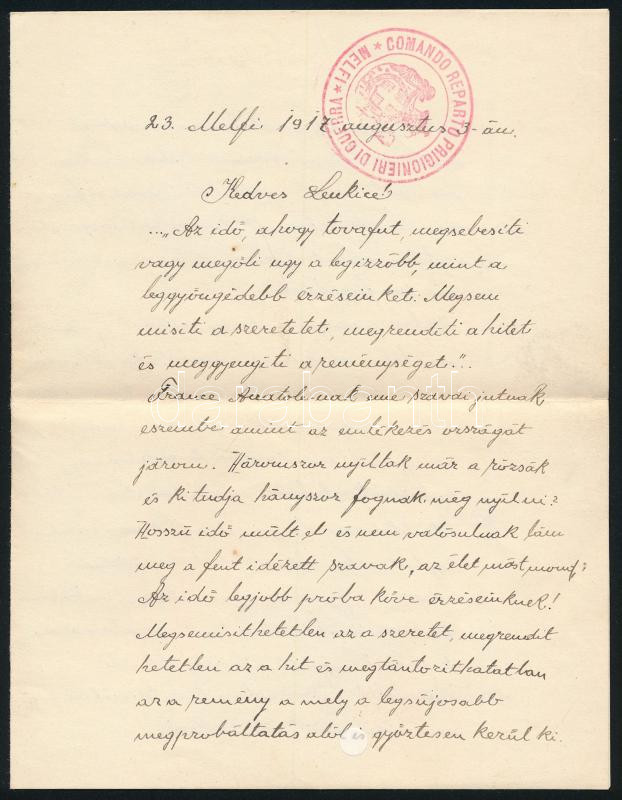 COMANDO REPARTO PRIGIONIERI DI GUERRA * MELFI *
23. Melfi 1917 augusztus 3-án.
Kedves Lenkice!
...„Az idő, ahogy tovafut, megsebesiti
vagy megöli ugy a legizzóbb, mint a
leggyöngédebb érzéseinket. Megsem
misiti a szeretetet, megrenditi a hitet
és meggyengiti a reménységet."...
France Anatol-nak eme szavai jutnak
eszembe amint az emlékezés országát
járom. Háromszor nyiltak már a rózsák
és ki tudja hányszor fognak még nyilni?
Hosszú idő mult el és nem valósulnak lám
meg a fent idézett szavak, az élet mást mond:
Az idő legjobb próba köve érzéseinknek!
Megsemisithetetlen az a szeretet, megrendit
hetetlen az a hit és megtántorithatatlan
az a remény a mely a legsújosabb
megprobáltatás alól is győztesen kerül ki.
darabanth